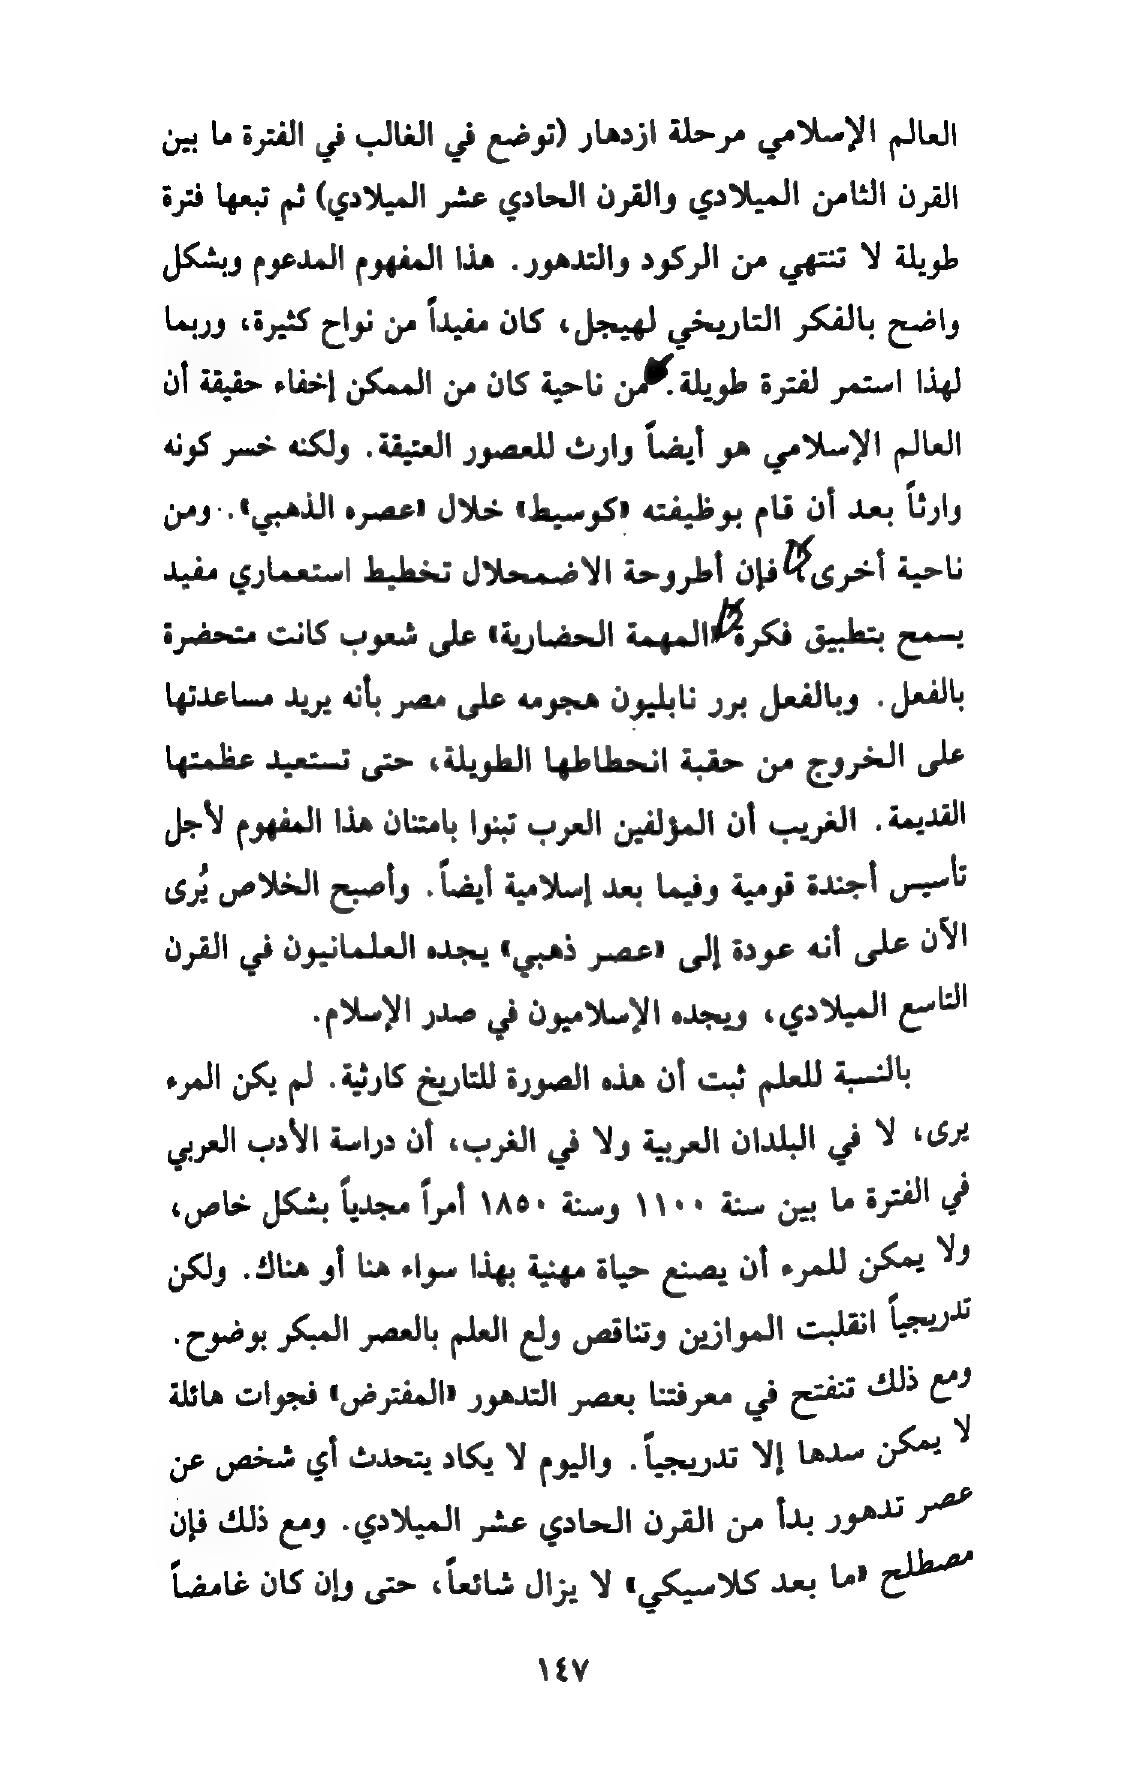 العالم الإسلامي مرحلة ازدهار (توضع في الغالب في الفترة ما بين
القرن الثامن الميلادي والقرن الحادي عشر الميلادي) ثم تبعها فترة
طويلة لا تنتهي من الركود والتدهور. هذا المفهوم المدعوم وبشكل
واضح بالفكر التاريخي لهيجل، كان مفيداً من نواح كثيرة، وربما
لهذا استمر لفترة طويلة. من ناحية كان من الممكن إخفاء حقيقة أن
العالم الإسلامي هو أيضاً وارث للعصور العتيقة. ولكنه خسر كونه
وارثاً بعد أن قام بوظيفته «كوسيط» خلال «عصره الذهبي». ومن
ناحية أخرى، فإن أطروحة الاضمحلال تخطيط استعماري مفيد
يسمح بتطبيق فكرة «المهمة الحضارية» على شعوب كانت متحضرة
بالفعل. وبالفعل برر نابليون هجومه على مصر بأنه يريد مساعدتها
على الخروج من حقبة انحطاطها الطويلة، حتى تستعيد عظمتها
القديمة. الغريب أن المؤلفين العرب تبنوا بامتنان هذا المفهوم لأجل
تأسيس أجندة قومية وفيما بعد إسلامية أيضاً. وأصبح الخلاص يُرى
الآن على أنه عودة إلى «عصر ذهبي» يجده العلمانيون في القرن
التاسع الميلادي، ويجده الإسلاميون في صدر الإسلام.
بالنسبة للعلم ثبت أن هذه الصورة للتاريخ كارثية. لم يكن المرء
يرى، لا في البلدان العربية ولا في الغرب، أن دراسة الأدب العربي
في الفترة ما بين سنة ١١٠٠ وسنة ١٨٥٠ أمراً مجدياً بشكل خاص،
ولا يمكن للمرء أن يصنع حياة مهنية بهذا سواء هنا أو هناك. ولكن
تدريجياً انقلبت الموازين وتناقص ولع العلم بالعصر المبكر بوضوح.
ومع ذلك تنفتح في معرفتنا بعصر التدهور «المفترض» فجوات هائلة
لا يمكن سدها إلا تدريجياً. واليوم لا يكاد يتحدث أي شخص عن
عصر تدهور بدأ من القرن الحادي عشر الميلادي. ومع ذلك فإن
مصطلح «ما بعد كلاسيكي» لا يزال شائعاً، حتى وإن كان غامضاً
١٤٧